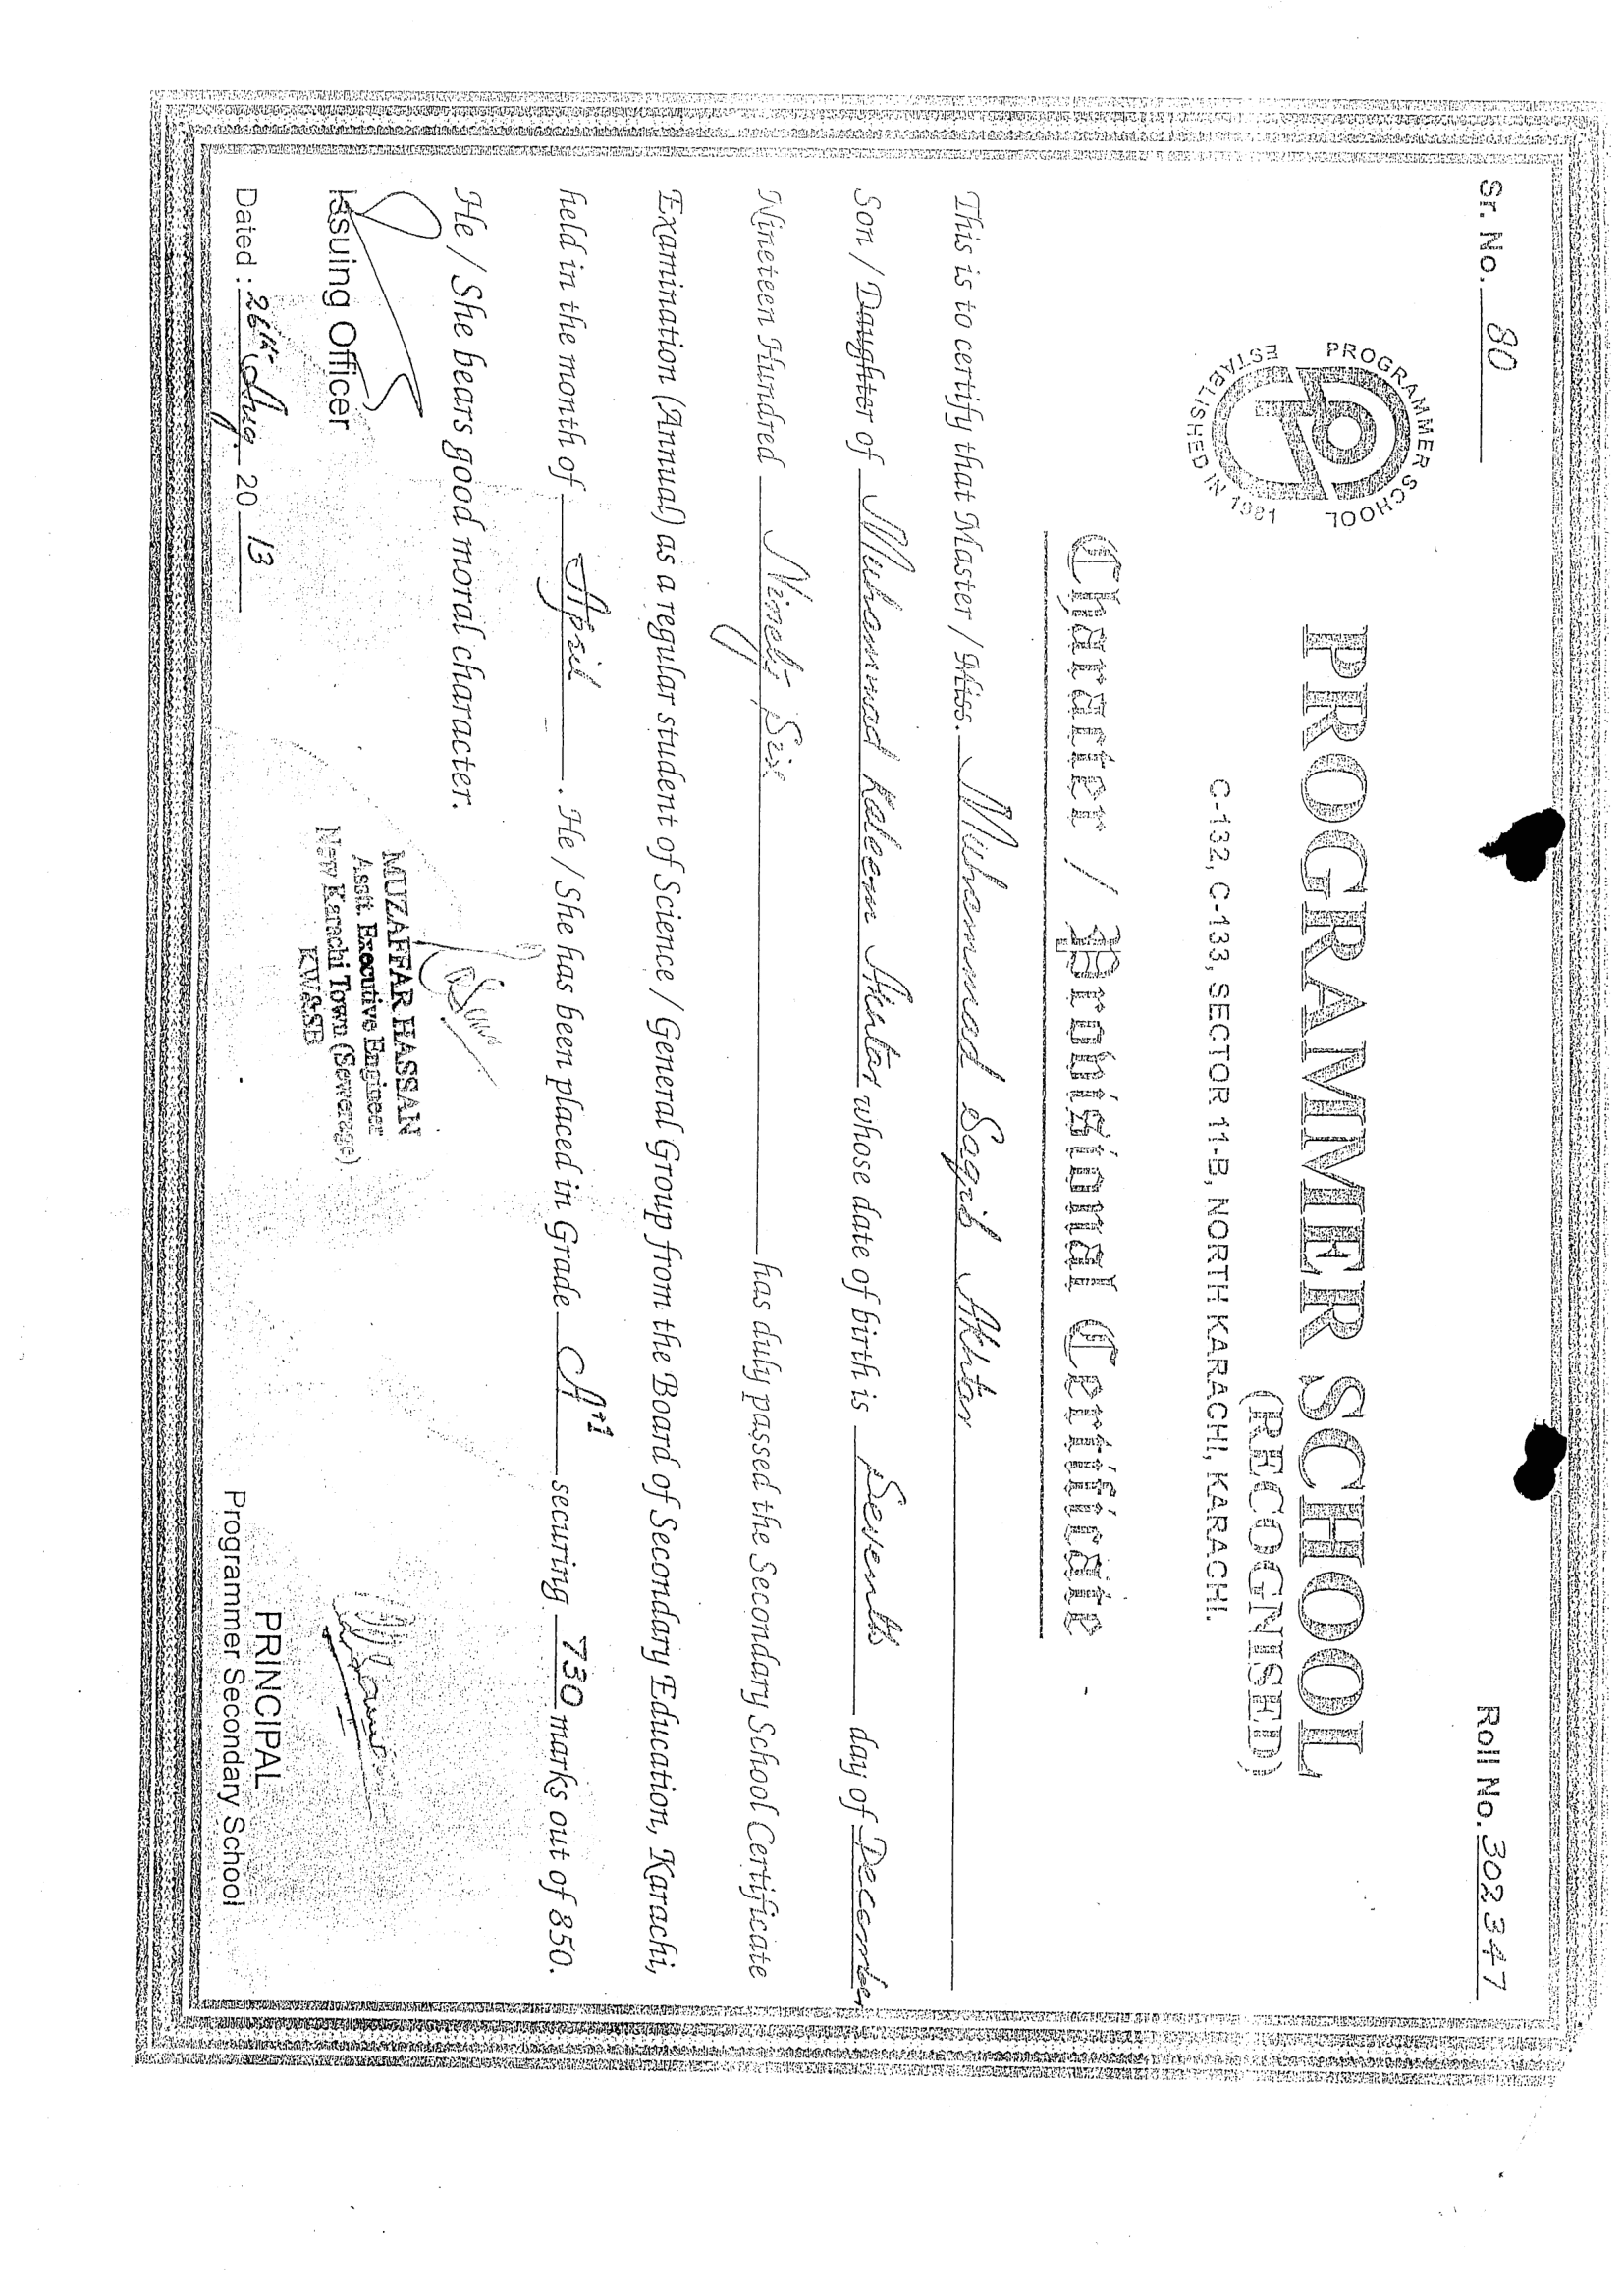 Sr. No. 80
Roll No. 302347
PROGRAMMER SCHOOL
ESTABLISHED IN 1981
PROGRAMMER SCHOOL
(RECOGNISED)
C-132, C-133, SECTOR 11-B, NORTH KARACHI, KARACHI.
Character / Provisional Certificate
This is to certify that Master / Miss. Muhammad Saqib Akhtar
Son / Daughter of Muhammad Kaleem Akhtar whose date of birth is Seventh day of December
Nineteen Hundred Ninety Six has duly passed the Secondary School Certificate
Examination (Annual) as a regular student of Science / General Group from the Board of Secondary Education, Karachi,
held in the month of April . He / She has been placed in Grade A+1 securing 730 marks out of 850.
He / She bears good moral character.
Issuing Officer
Dated : 26th Aug. 20 13
MUZAFFAR HASSAN
Asstt. Executive Engineer
New Karachi Town (Sewerage)
KW&SB
PRINCIPAL
Programmer Secondary School